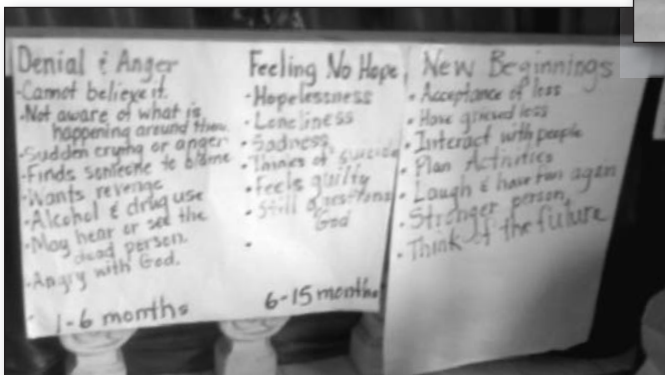 Denial & Anger
- Cannot believe it.
- Not aware of what is
happening around them.
- Sudden crying or anger
- Finds someone to blame
- Wants revenge
- Alcohol & drug use
- May hear or see the
dead person.
- Angry with God.
- 1-6 months
Feeling No Hope
- Hopelessness
- Loneliness
- Sadness
- Thinks of suicide
- Feels guilty
- Still questions
God
-
6-15 months
New Beginnings
- Acceptance of loss
- Have grieved loss
- Interact with people
- Plan Activities
- Laugh & have fun again
- Stronger person,
- Think of the future